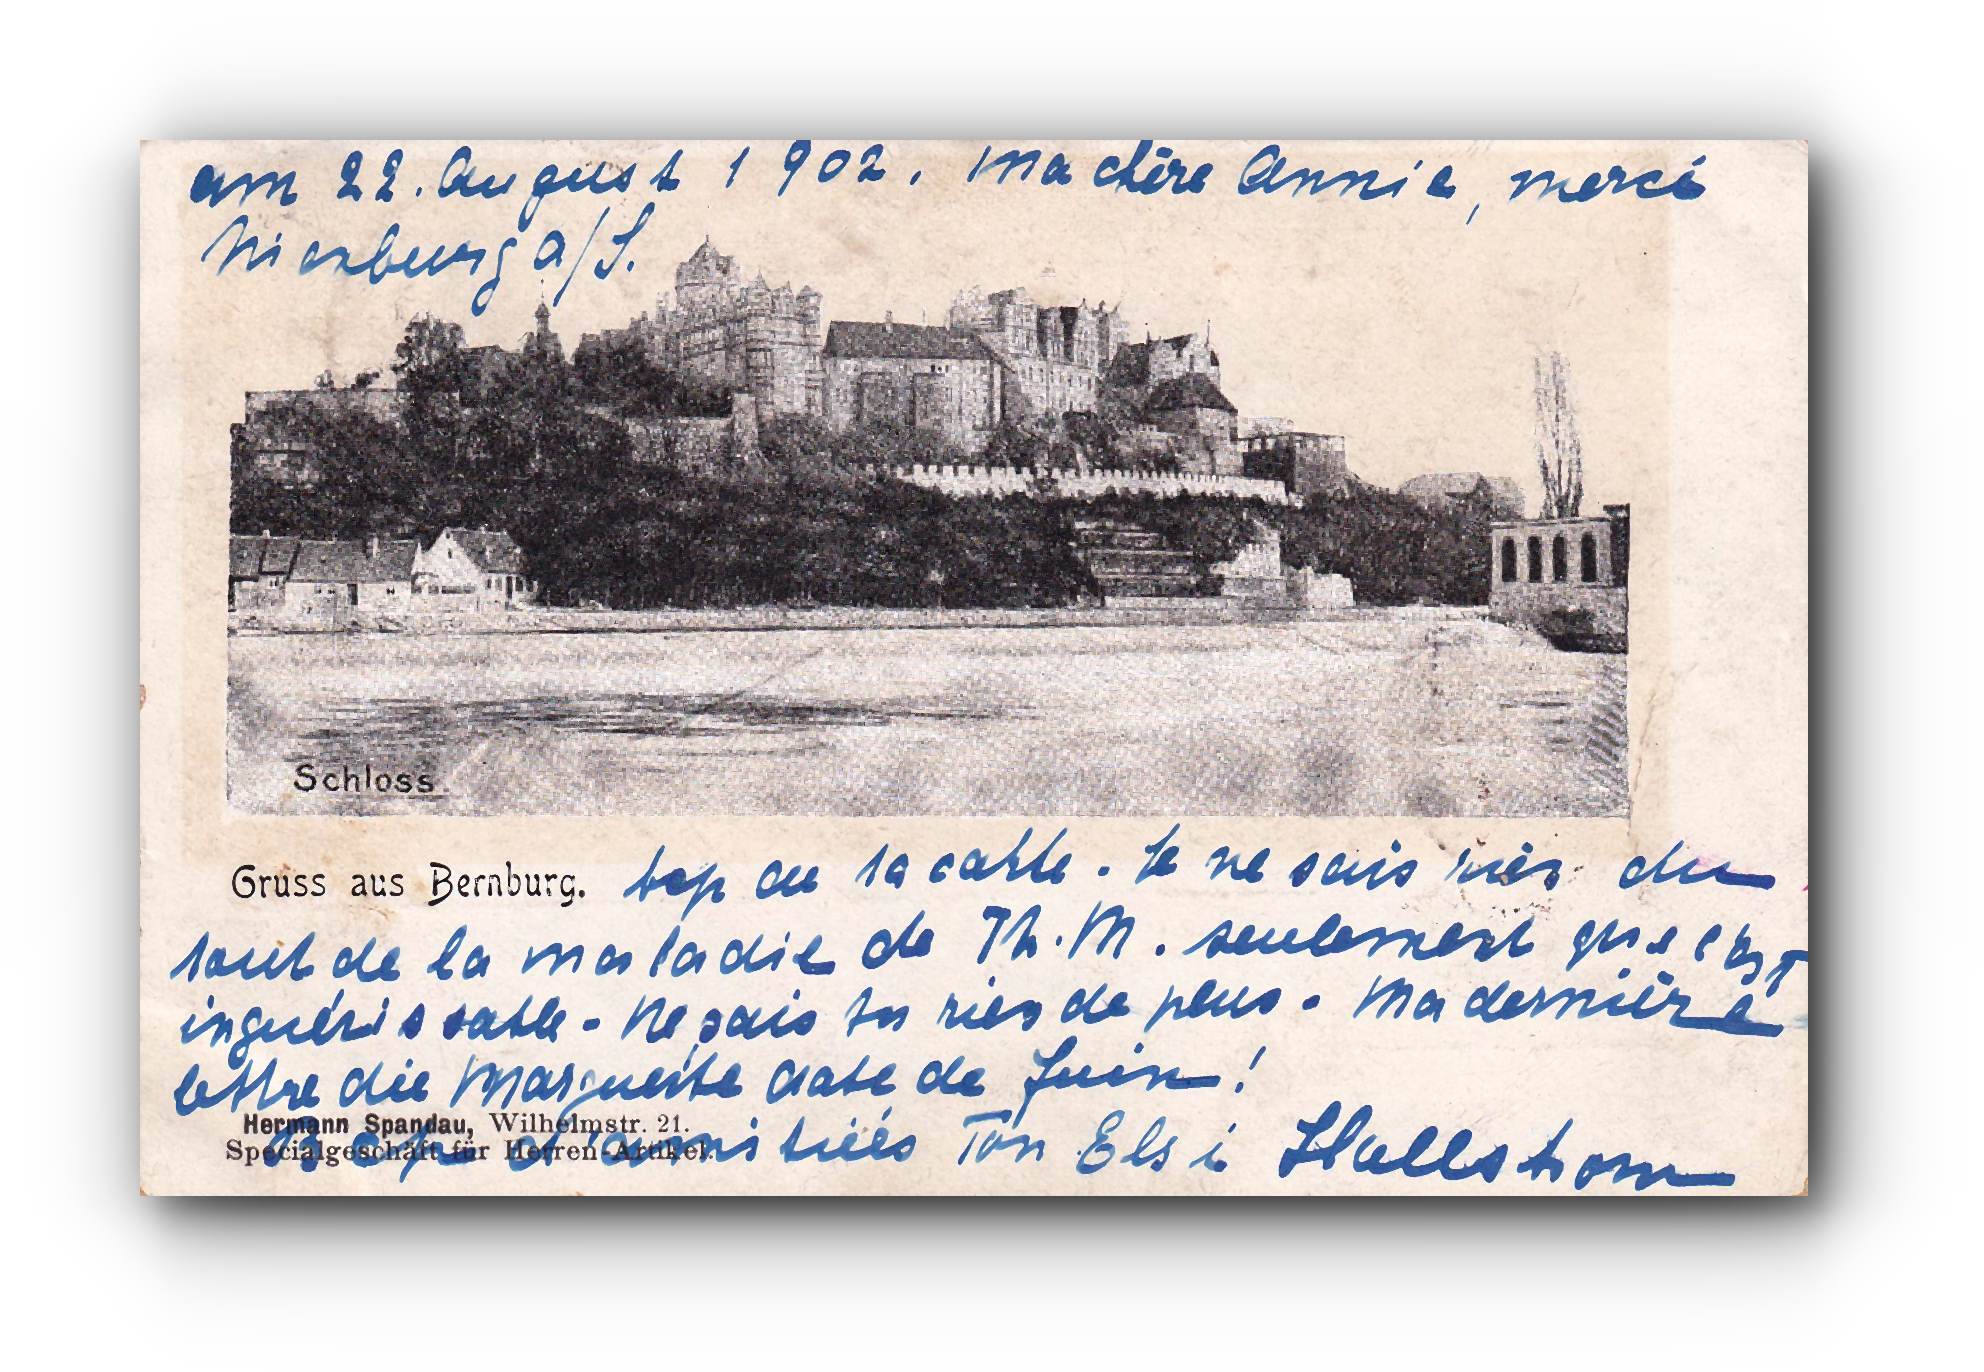 am 22. August 1902. Ma chère Annie, merci
Nienburg a/S.
Schloss.
Gruss aus Bernburg.
bcp de la carte. Je ne sais rien du
tout de la maladie de Th. M. seulement que c'est
inguérissable. Ne sais tu rien de plus. Ma dernière
lettre die Marguerite date de Juin!
Hermann Spandau, Wilhelmstr. 21.
Specialgeschäft für Herren-Artikel.
Bcp d'amitiés Ton Elsi Hallstrom